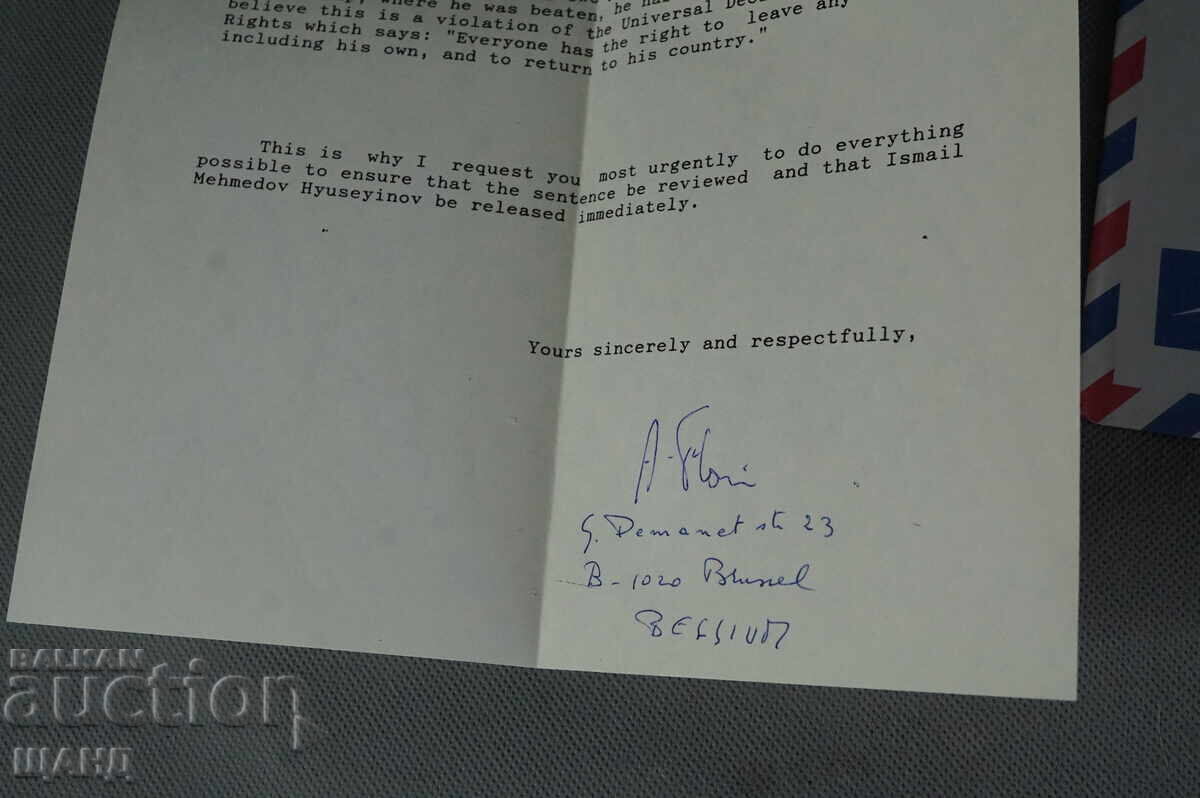 where he was beaten, he
believe this is a violation of the Universal
Rights which says: "Everyone has the right to leave any
including his own, and to return to his country."
This is why I request you most urgently to do everything
possible to ensure that the sentence be reviewed and that Ismail
Mehmedov Hyuseyinov be released immediately.
Yours sincerely and respectfully,
G. Demanet str 23
B-1020 Brussel
BELGIUM
BALKAN
auction
ШАНД